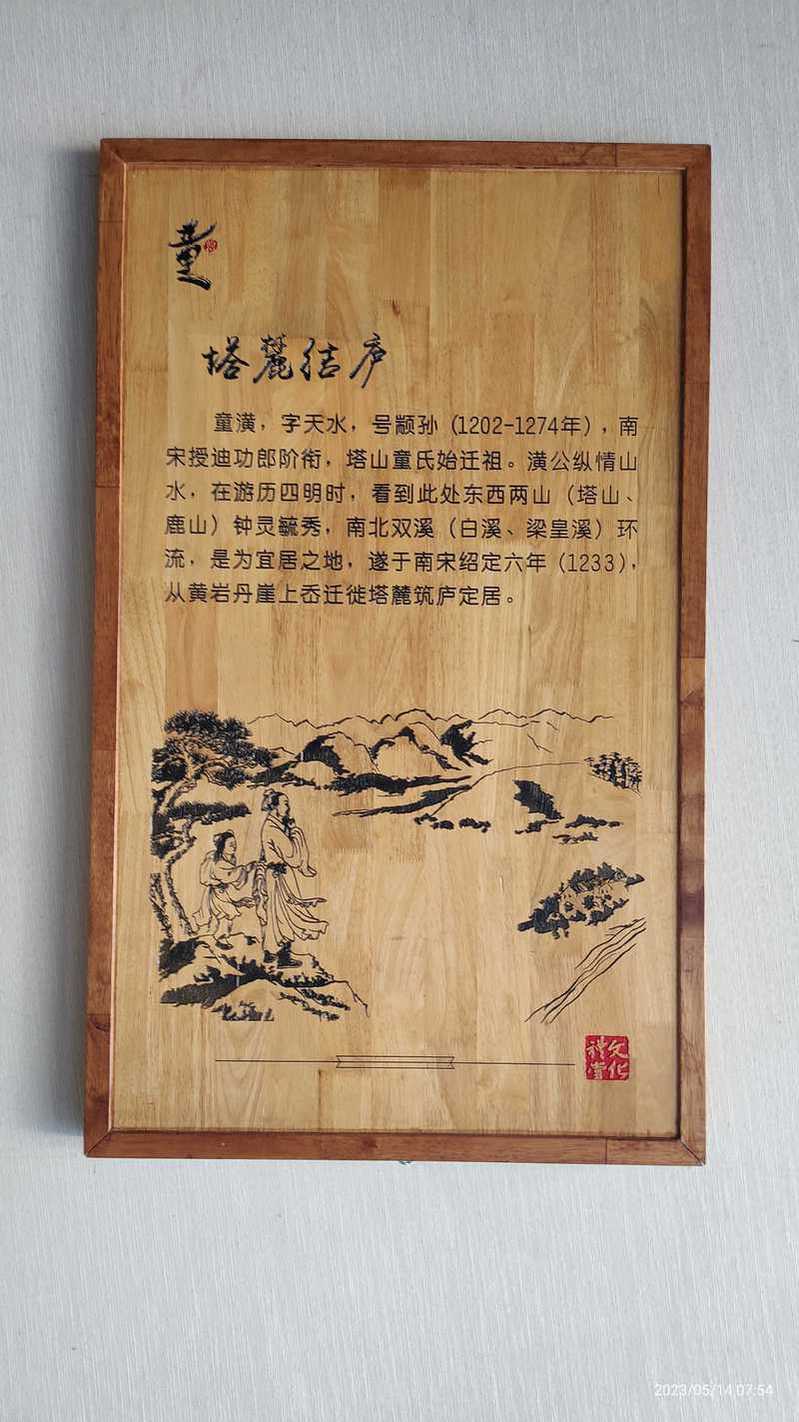 童
塔麓结庐
童潢，字天水，号颛孙（1202-1274年），南
宋授迪功郎阶衔，塔山童氏始迁祖。潢公纵情山
水，在游历四明时，看到此处东西两山（塔山、
鹿山）钟灵毓秀，南北双溪（白溪、梁皇溪）环
流，是为宜居之地，遂于南宋绍定六年（1233），
从黄岩丹崖上岙迁徙塔麓筑庐定居。
文化
礼堂
2023/05/14 07:54